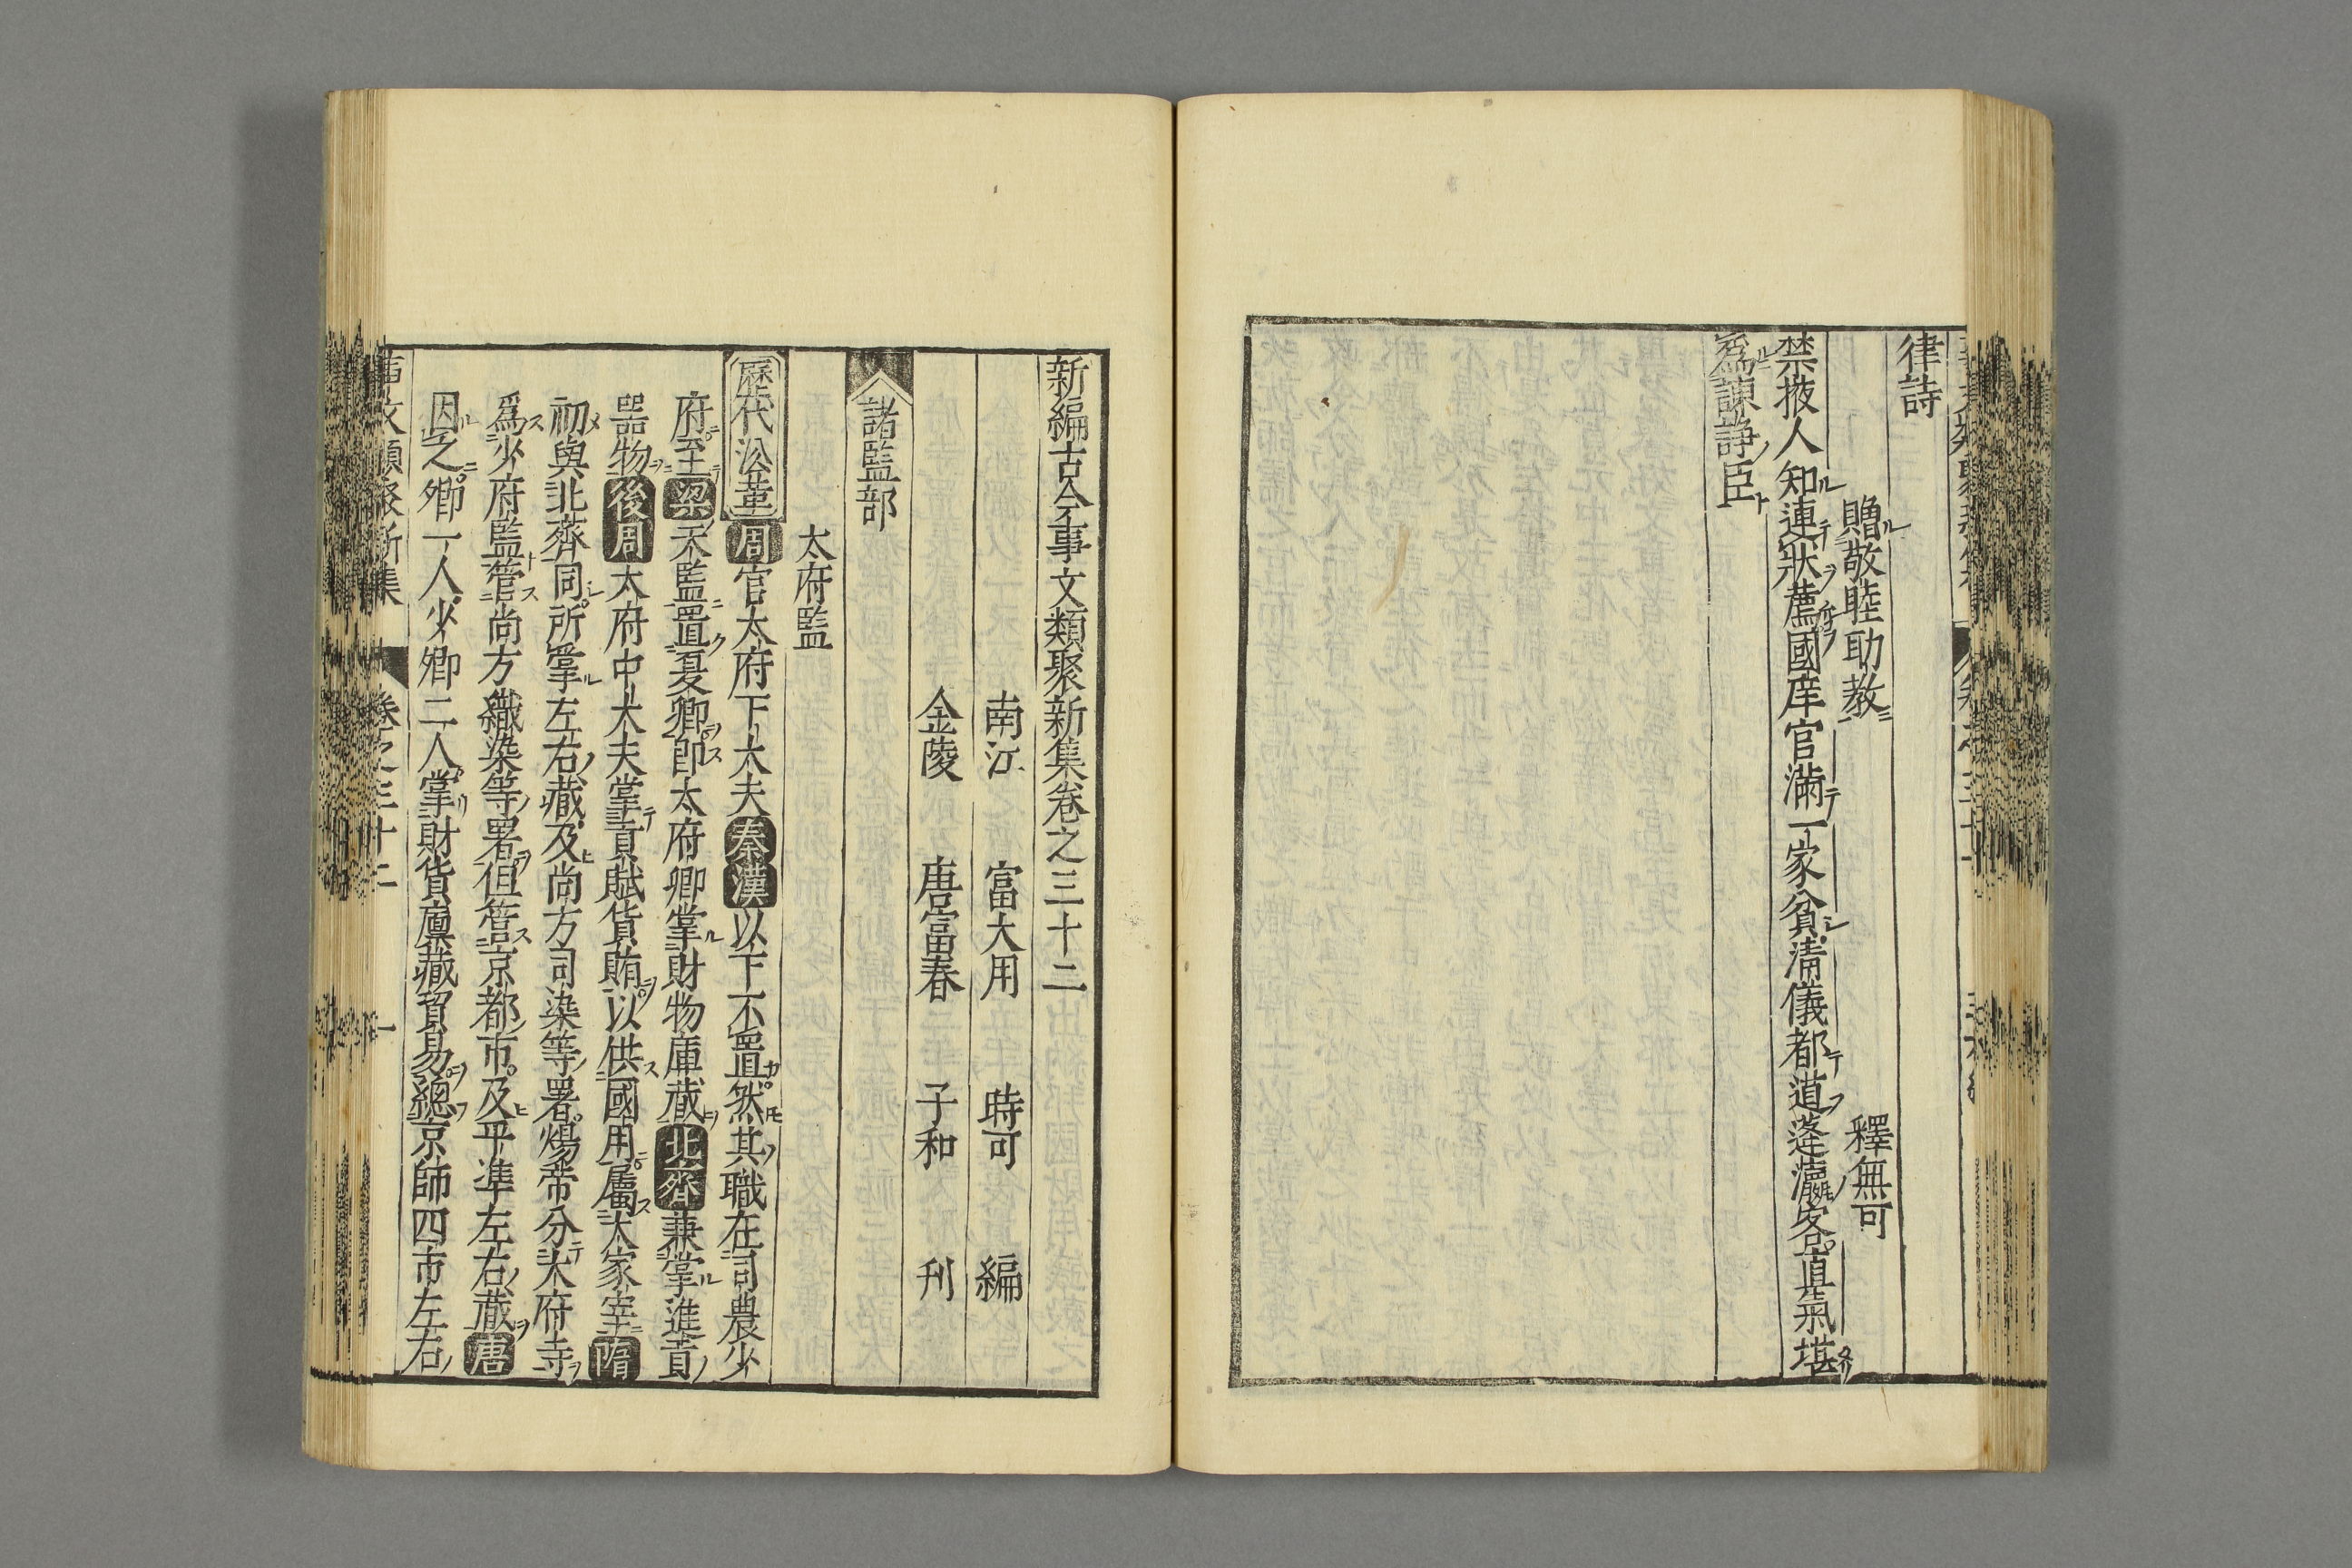 律詩
贈敬睦助教 釋無可
禁掖人知連狀薦國庠官滿一家貧清儀都道蓬瀛客直氣堪
爲諫諍臣
新編古今事文類聚新集卷之三十二
南江 富大用 時可 編
金陵 唐富春 子和 刊
諸監部
太府監
歷代沿革 周官太府下大夫秦漢以下不置然其職在司農少
府至梁天監置夏卿卽太府卿掌財物庫蔵北齊兼掌進貢
器物後周太府中大夫掌貢賦貨賄以供國用屬大冢宰隋
初與北齊同所掌左右藏及尚方司染等署煬帝分太府寺
爲少府監管尚方織染等署但管京都市及平準左右蔵唐
因之卿一人少卿二人掌財貨廩藏貿易總京師四市左右
事文類聚新集 卷之三十二 一